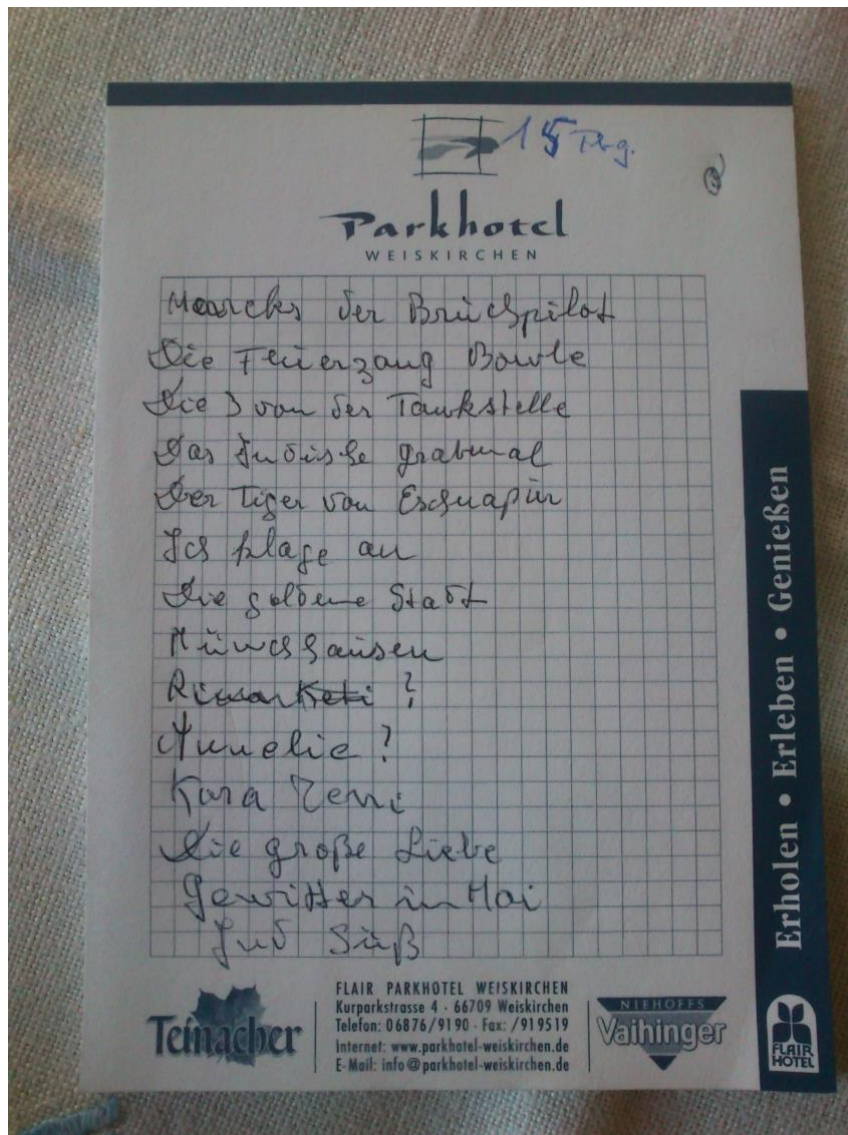 15
Parkhotel
WEISKIRCHEN
der Bruchpilot
Die Feuerzang Bowle
Die 3 von der Tankstelle
Das Indische grabmal
Der Tiger von Eschnapur
Ich klage an
Die goldene Stadt
Münchhausen
?
Annelie ?
Kara Terri
Die große Liebe
Gewitter im Mai
Jud Süß
Erholen • Erleben • Genießen
Teinacher
FLAIR PARKHOTEL WEISKIRCHEN
Kurparkstrasse 4 · 66709 Weiskirchen
Telefon: 06876/9190 · Fax: /919519
Internet: www.parkhotel-weiskirchen.de
E-Mail: info@parkhotel-weiskirchen.de
NIEHOFFS
Vaihinger
FLAIR
HOTEL